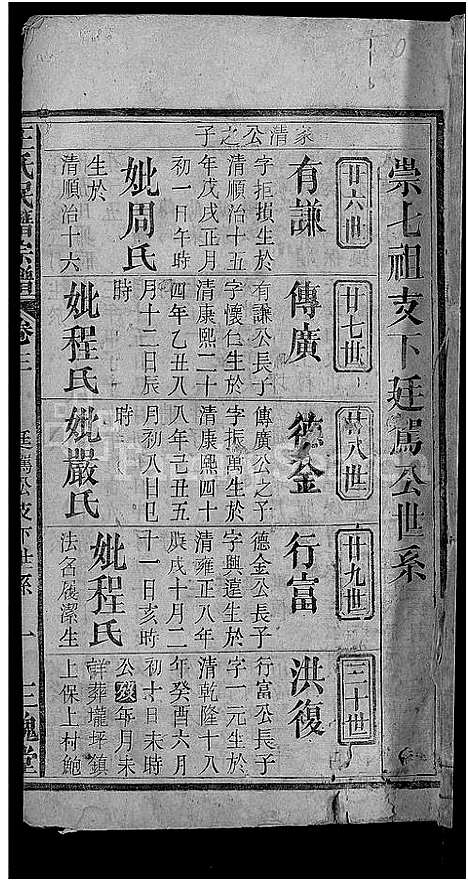 崇七祖支下廷駕公世系
廿六世
家清公之子
有謙
字拒損生於
清順治十五
年戊戌正月
初一日午時
妣周氏
生於
清順治十六
廿七世
傳廣
有謙公長子
字懷仁生於
清康熙二十
四年乙丑八
月十二日辰
時
妣程氏
廿八世
德金
傳廣公之子
字振萬生於
清康熙四十
八年己丑五
月初八日巳
時
妣嚴氏
廿九世
行富
德金公長子
字興遠生於
清雍正八年
庚戌十月二
十一日亥時
妣程氏
法名履潔生
三十世
洪復
行富公長子
字一元生於
清乾隆十八
年癸酉六月
初十日未時
公歿年月未
詳葬壠坪鎮
上保上村鮑
王氏民譜宗譜
卷三
廷駕公支下世系
一
三槐堂